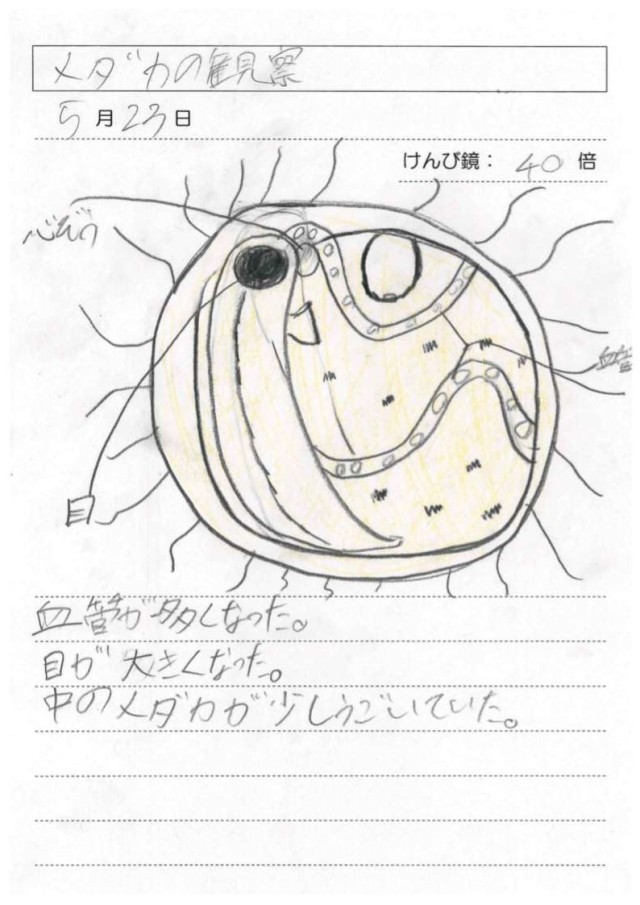 メダカの観察
5月23日
けんび鏡： 40 倍
心ぞう
血管
目
血管が多くなった。
目が大きくなった。
中のメダカが少しうごいていた。